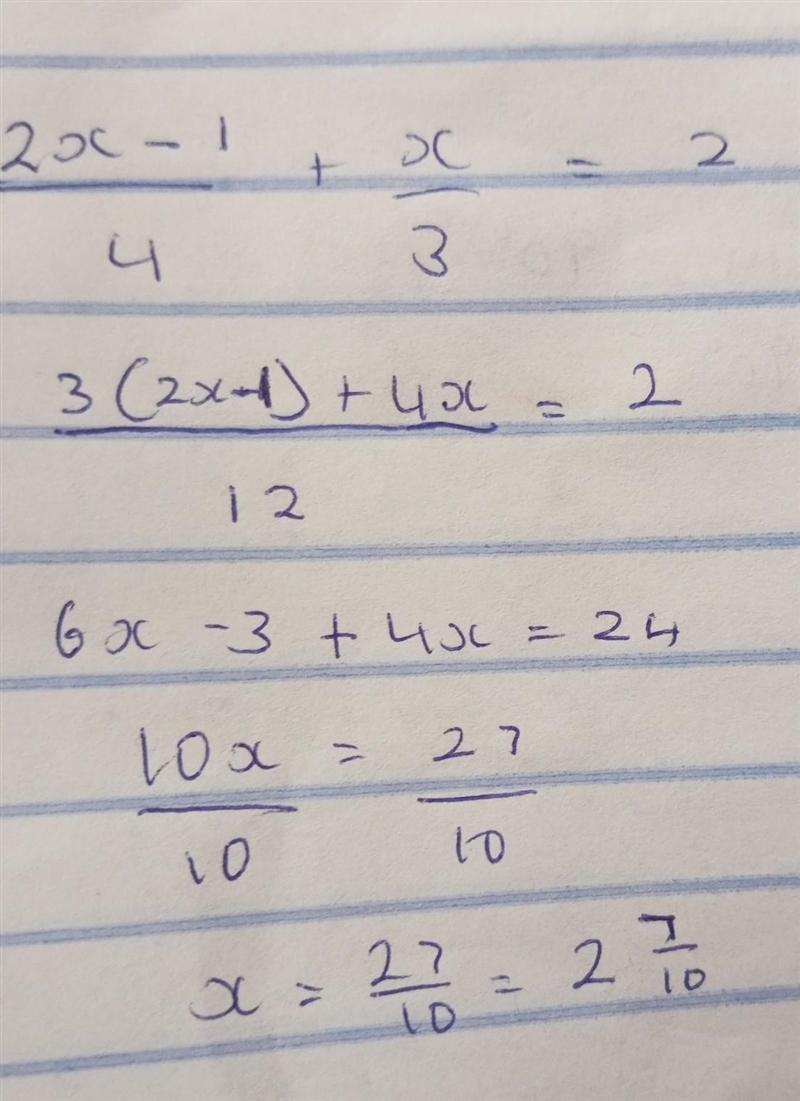 2x - 1 / 4 + x / 3 = 2
3 (2x-1) + 4x / 12 = 2
6x - 3 + 4x = 24
10x / 10 = 27 / 10
x = 27 / 10 = 2 7/10